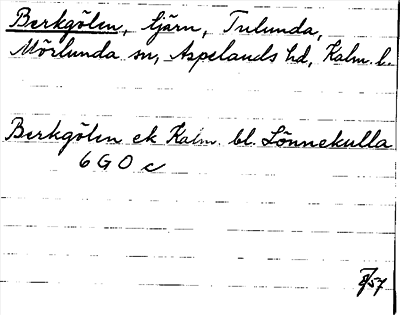 Berkgölen, tjärn, Tulunda,
Mörlunda sn, Aspelands hd, Kalm. l.
Berkgölen ek Kalm. bl. Lönnekulla
6 G 0 c
57